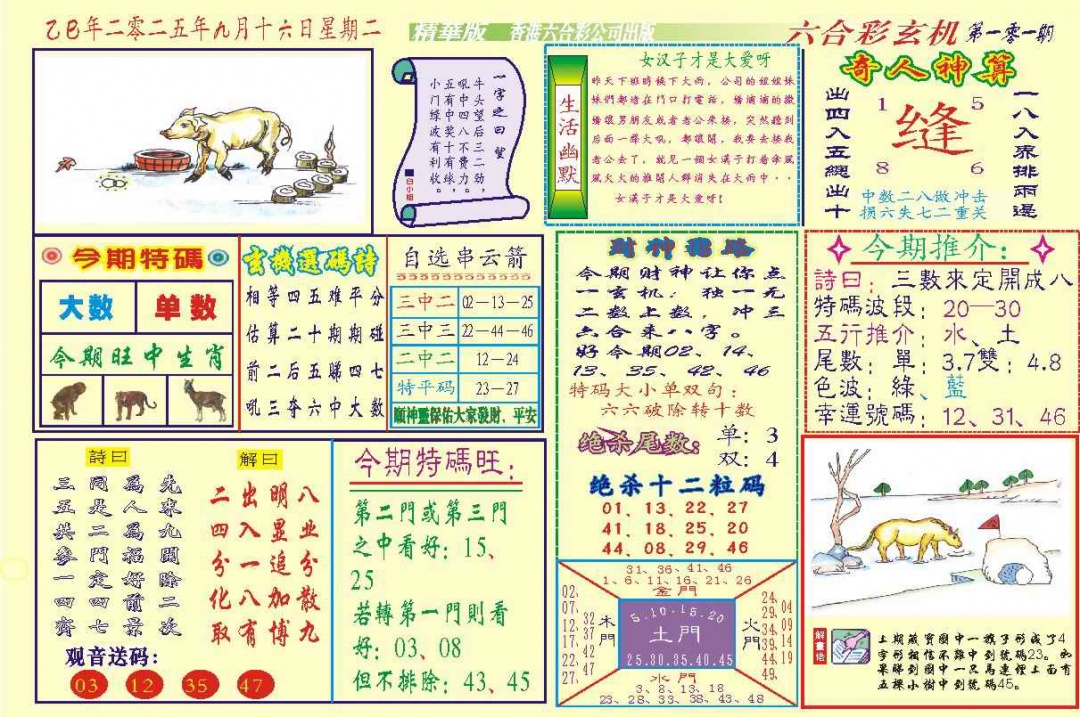 乙巳年二零二五年九月十六日星期二
精華版 香港六合彩公司出版
六合彩玄机 第一零一期
一字之曰望
牛头望后三二劲
吼中四八不费力
五有中奖十有球
小门绿波有利收
白小姐
生活幽默
女汉子才是大爱呀
昨天下班時候下大雨，公司的姐姐妹
妹們都堵在門口打電話，
后面一聲大吼，都讓開，我要去接我
老公去了，就見一個女漢子打着傘風
風火火的推開人群消失在大雨中··
女漢子才是大爱呀！
奇人神算
出四入五總出十
1 5
缝
8 6
一八入界排兩邊
中数二八做冲击
损六失七二重关
今期特碼
大数 单数
今期旺中生肖
玄機選碼詩
相等四五难平分
估算二十期期碰
前二后五睇四七
吼三夺六中大数
自选串云箭
三中二 02—13—25
三中三 22—44—46
二中二 12—24
特平码 23—27
順神靈保佑大家發財、平安
今期财神让你点
一玄机：独一无
二数上数，冲三
六合来八字。
好今期02、14、
13、35、42、46
特码大小单双句：
六六破除转十数
绝杀尾数：
单：3
双：4
绝杀十二粒码
01、13、22、27
41、18、25、20
44、08、29、46
今期推介：
詩曰：三數來定開成八
特碼波段：20—30
五行推介：水、土
尾數：單：3.7雙：4.8
色波：綠、藍
幸運號碼：12、31、46
詩曰
三同爲先
五是人來
共二爲九
參門福開
一定好除
四四前二
齊七景次
解曰
二出明八
四入显业
分一追分
化八加散
取有博九
观音送码：
03 12 35 47
今期特碼旺：
第二門或第三門
之中看好：15、
25
若轉第一門則看
好：03、08
但不排除：43、45
31、36、41、46
1、6、11、16、21、26
金門
02、07、12、17、22、27、
32 37 42 47
木門
5.10.15.20
土門
25.30.35.40.45
火門
24、29、34、39、44、49、
04 09 14 19
水門
3、8、13、18
23、28、33、38、43、48
解畫佬
上期藏寳圖中一猴子形成了4
字形相信不難中到號碼23。如
果睇到圖中一只馬連檯上面有
五棵小樹中到號碼45。